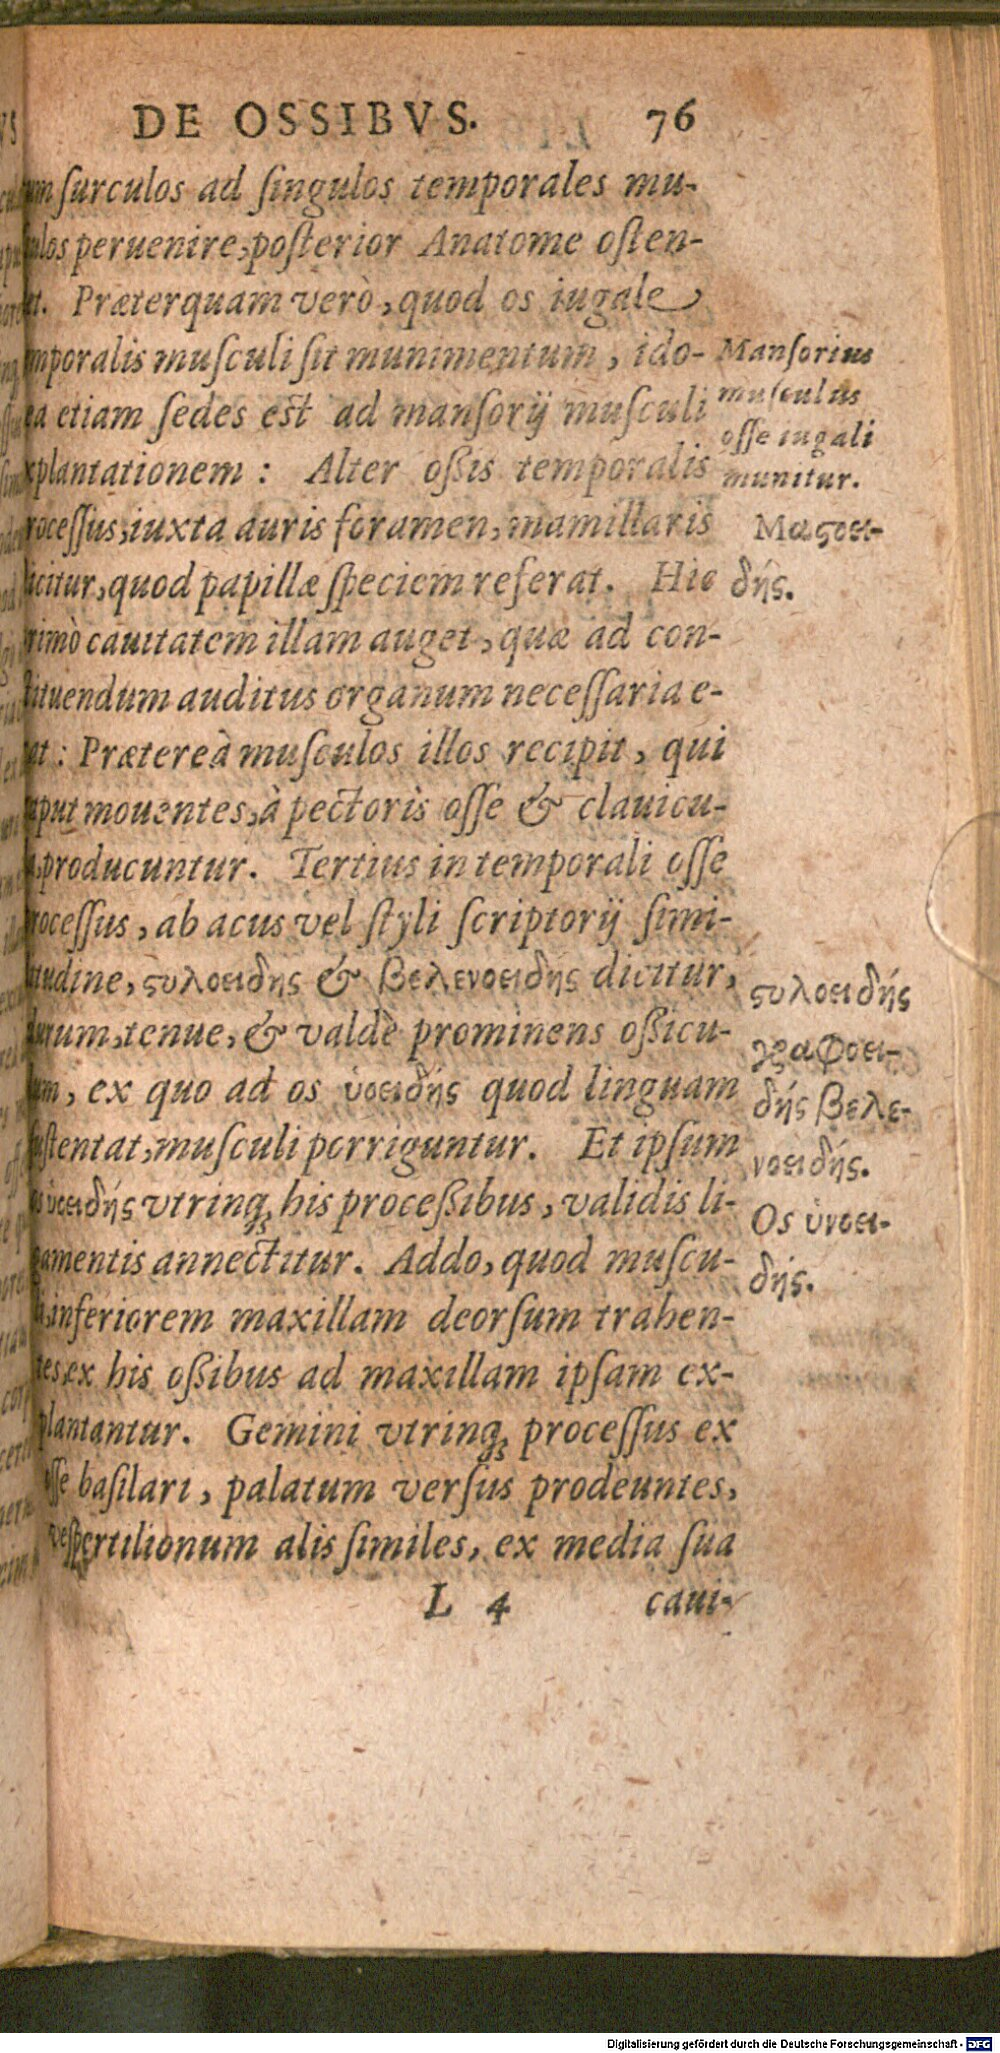 DE OSSIBVS. 76
ſurculos ad ſingulos temporales mu-
peruenire, poſterior Anatome oſten-
Præterquam verò, quod os iugale
muſculi ſit munimentum, ido-
etiam ſedes eſt ad manſorij muſculi
xplantationem : Alter oßis temporalis
roceſſus, iuxta auris foramen, mamillaris
icitur, quod papillæ ſpeciem referat. Hic
rimò cauitatem illam auget, quæ ad con-
ſtituendum auditus organum neceſſaria e-
rat : Prætereà muſculos illos recipit, qui
aput mouentes, à pectoris oſſe & clauicu-
producuntur. Tertius in temporali oſſe
roceſſus, ab acus vel ſtyli ſcriptorij ſimi-
itudine, ϛυλοειδης & βελενοειδης dicitur,
durum, tenue, & valdè prominens oßicu-
lum, ex quo ad os ὑοειδής quod linguam
ſuſtentat, muſculi porriguntur. Et ipſum
os ὑοειδής vtrinq; his proceßibus, validis li-
gamentis annectitur. Addo, quod muſcu-
li, inferiorem maxillam deorſum trahen-
tes, ex his oßibus ad maxillam ipſam ex-
plantantur. Gemini vtrinq; proceſſus ex
oſſe baſilari, palatum verſus prodeuntes,
veſpertilionum alis ſimiles, ex media ſua
L 4 caui-
Manſorius
muſculus
oſſe iugali
munitur.
Μαϛοει-
δής.
ϛυλοειδής
γραφοει-
δής βελε-
νοειδής.
Os ὑνοει-
δής.
Digitalisierung gefördert durch die Deutsche Forschungsgemeinschaft - DFG